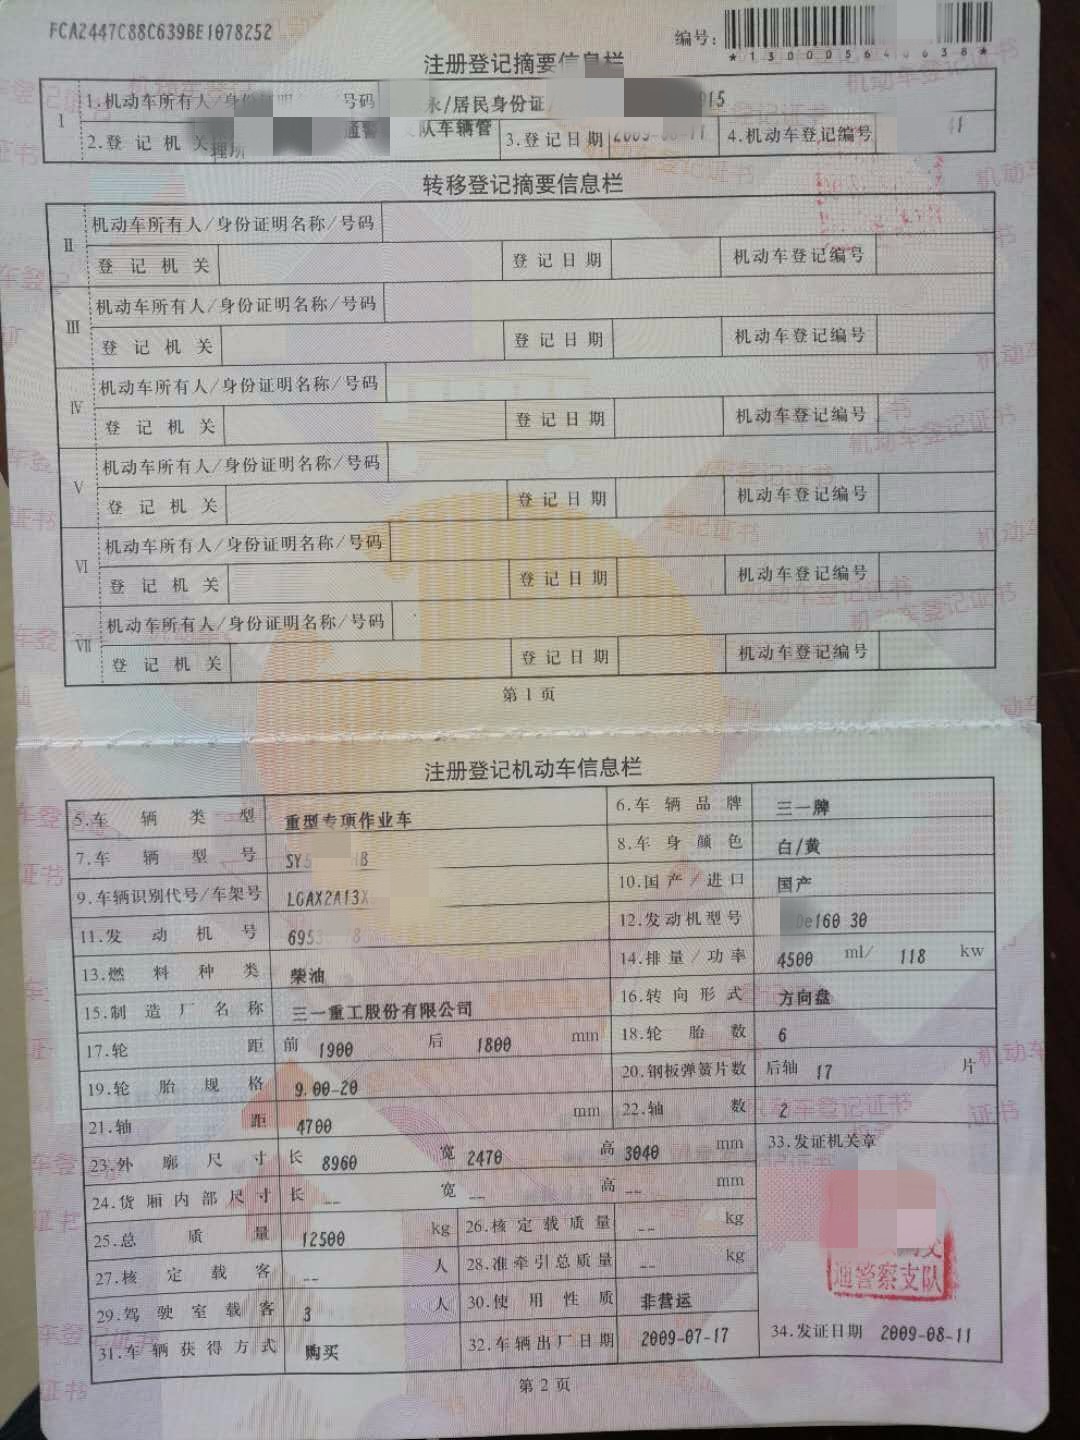 FCA2447C88C639BE1078252
编号:
注册登记摘要信息栏
1 1.机动车所有人/身份 号码 永/居民身份证 915
2.登记机关 理所 通警 支队车辆管 3.登记日期 2009-08-11 4.机动车登记编号 41
转移登记摘要信息栏
II 机动车所有人/身份证明名称/号码
登记机关 登记日期 机动车登记编号
III 机动车所有人/身份证明名称/号码
登记机关 登记日期 机动车登记编号
IV 机动车所有人/身份证明名称/号码
登记机关 登记日期 机动车登记编号
V 机动车所有人/身份证明名称/号码
登记机关 登记日期 机动车登记编号
VI 机动车所有人/身份证明名称/号码
登记机关 登记日期 机动车登记编号
VII 机动车所有人/身份证明名称/号码
登记机关 登记日期 机动车登记编号
第1页
注册登记机动车信息栏
5.车辆类型 重型专项作业车 6.车辆品牌 三一牌
7.车辆型号 SY5 HB 8.车身颜色 白/黄
9.车辆识别代号/车架号 LGAX2A13X 10.国产/进口 国产
11.发动机号 6953 8 12.发动机型号 De160 30
13.燃料种类 柴油 14.排量/功率 4500 ml/ 118 kw
15.制造厂名称 三一重工股份有限公司 16.转向形式 方向盘
17.轮距 前 1900 后 1800 mm 18.轮胎数 6
19.轮胎规格 9.00-20 20.钢板弹簧片数 后轴 17 片
21.轴距 4700 mm 22.轴数 2
23.外廓尺寸 长 8960 宽 2470 高 3040 mm 33.发证机关章
24.货厢内部尺寸 长 -- 宽 -- 高 -- mm
25.总质量 12500 kg 26.核定载质量 -- kg
27.核定载客 -- 人 28.准牵引总质量 -- kg
通警察支队
29.驾驶室载客 3 人 30.使用性质 非营运
31.车辆获得方式 购买 32.车辆出厂日期 2009-07-17 34.发证日期 2009-08-11
第2页